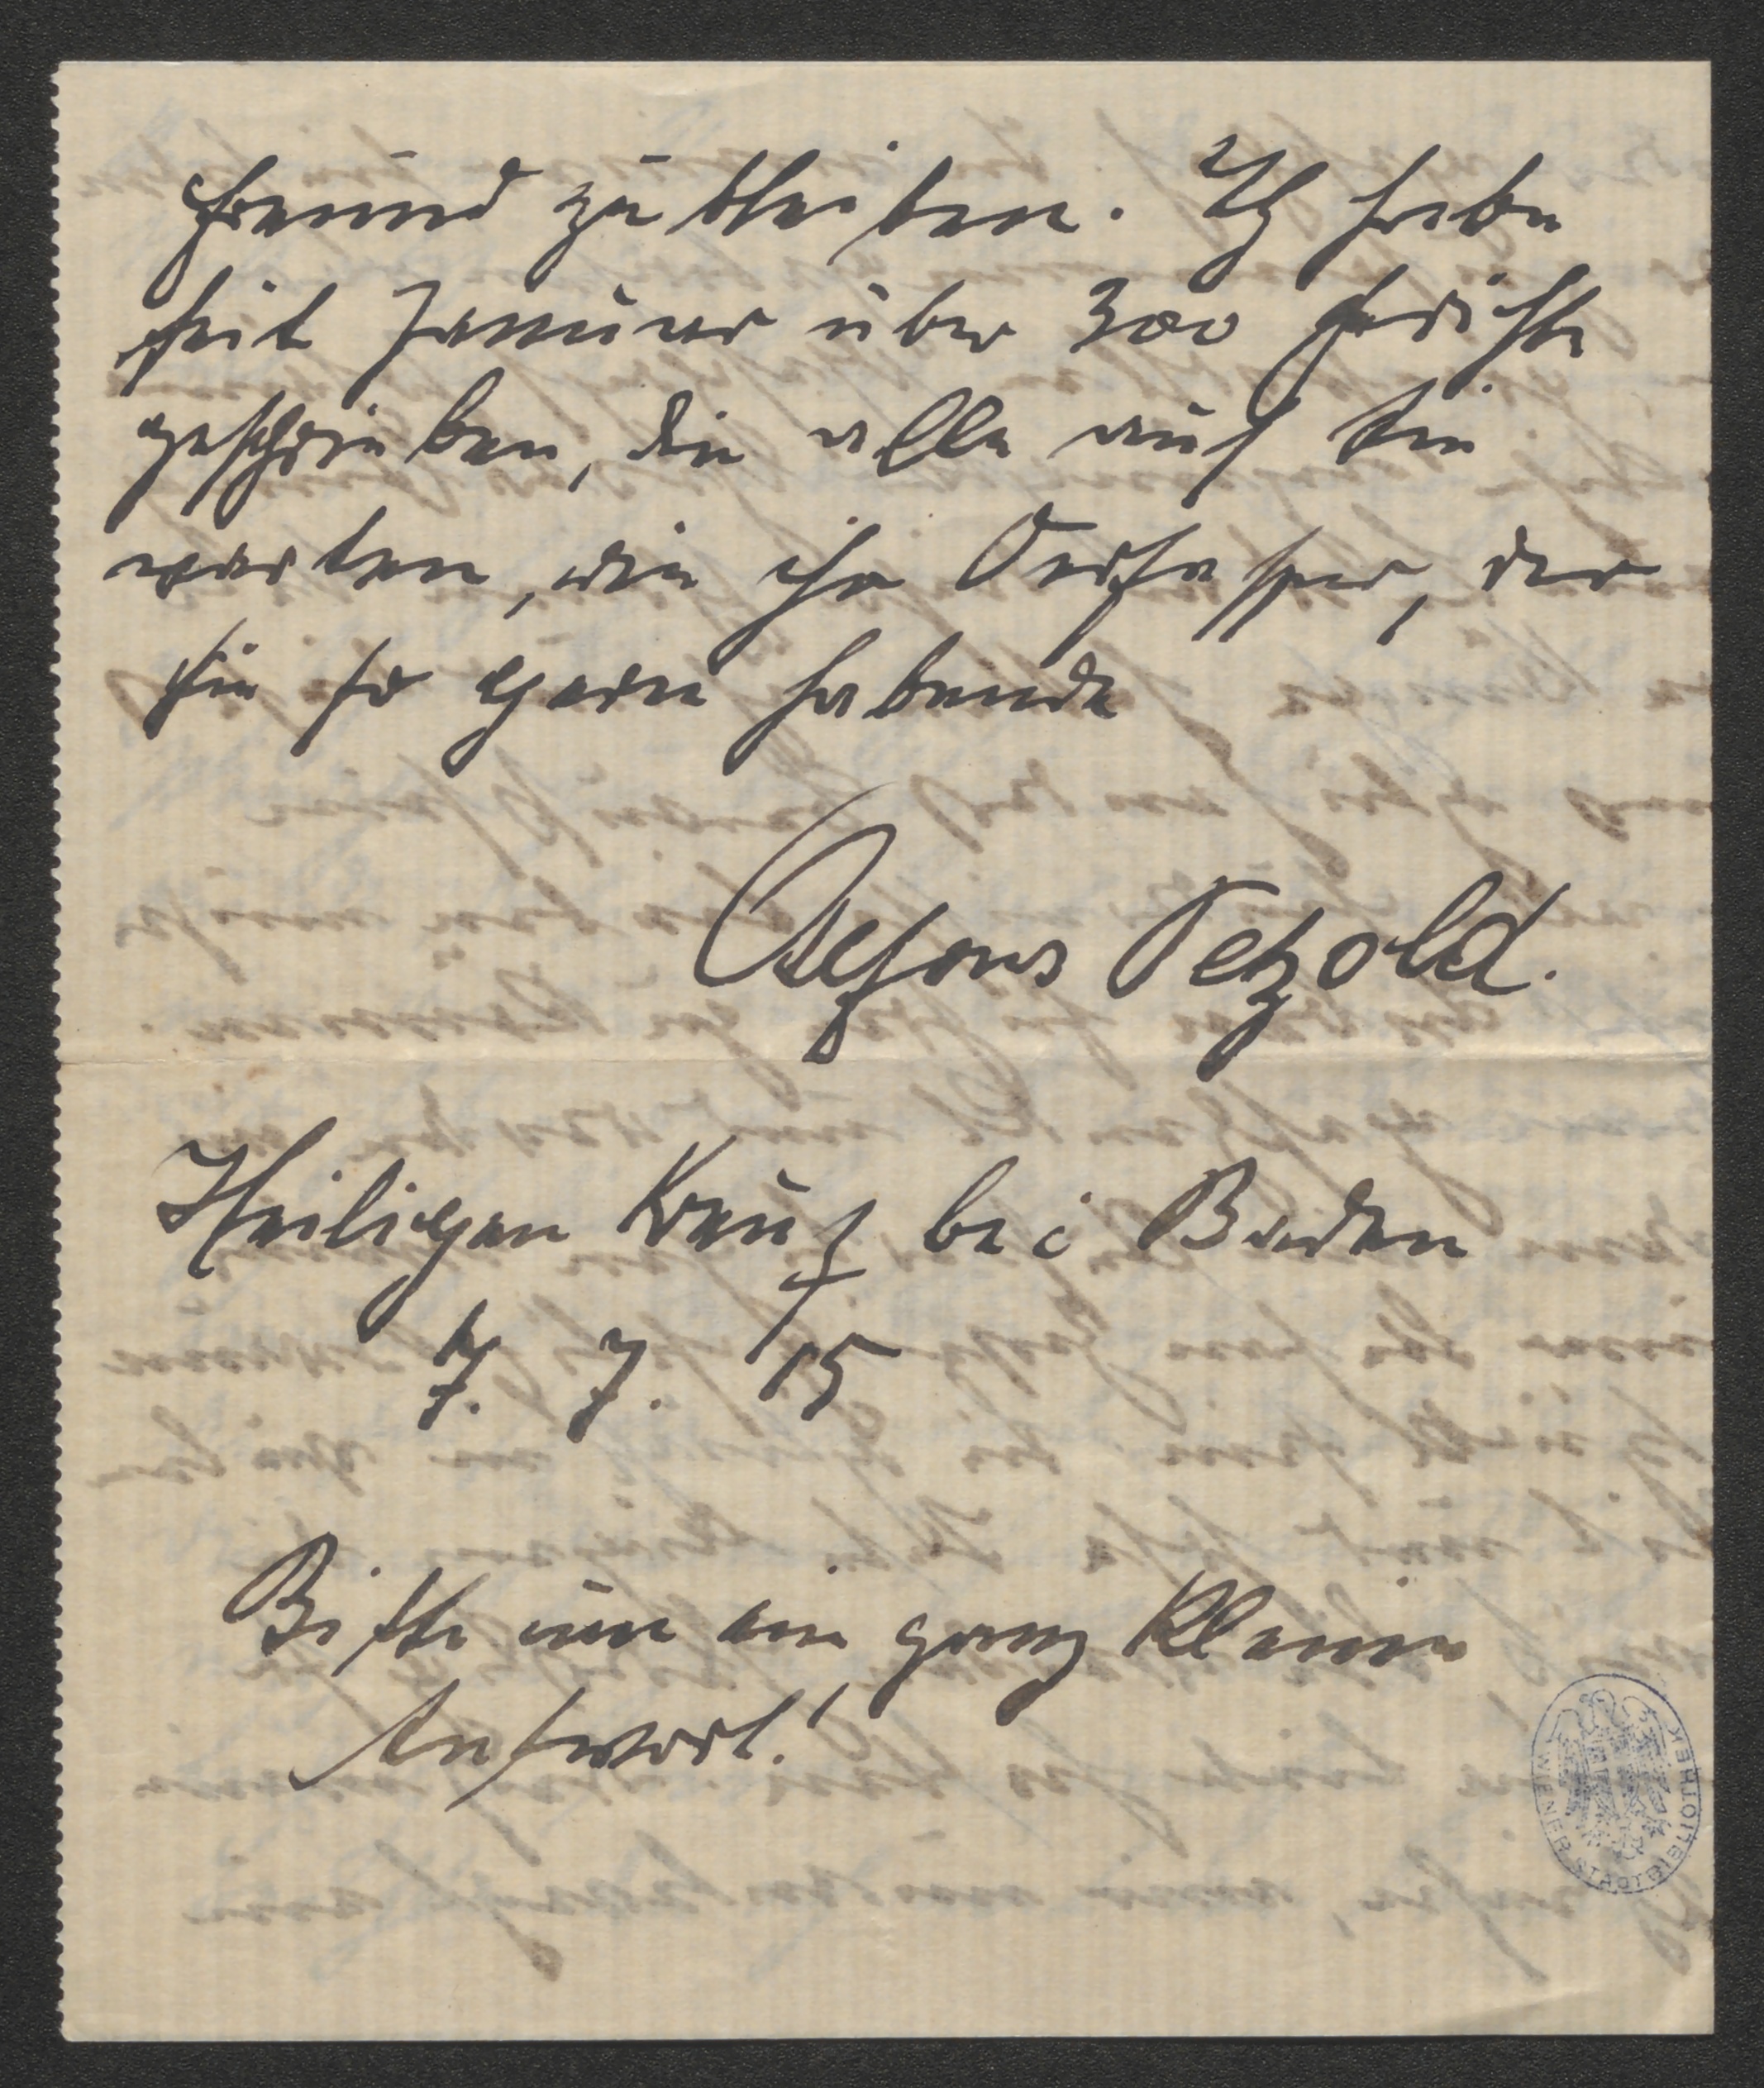 Freund zu bleiben. Ich habe
seit Januar über 300 Gedichte
geschrieben, die alle auf Sie
warten, wie ihr Verfasser, der
Sie so gern habende
Alfons Petzold.
Heiligen Kreuz bei Baden
7. 7. 15
Bitte um eine ganz kleine
Antwort!
WIENER STADTBIBLIOTHEK